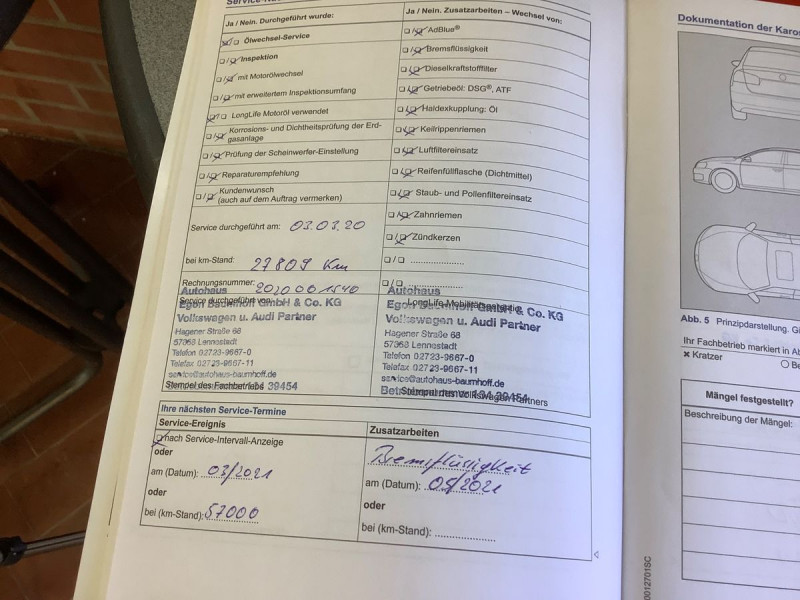 Ja / Nein. Durchgeführt wurde:
Ölwechsel-Service
Inspektion
mit Motorölwechsel
mit erweitertem Inspektionsumfang
LongLife Motoröl verwendet
Korrosions- und Dichtheitsprüfung der Erd-
gasanlage
Prüfung der Scheinwerfer-Einstellung
Reparaturempfehlung
Kundenwunsch
(auch auf dem Auftrag vermerken)
Service durchgeführt am: 03.03.20
bei km-Stand: 27809 Km
Rechnungsnummer:
Service durchgeführt von:
Autohaus
Egon Baumhoff GmbH & Co. KG
Volkswagen u. Audi Partner
Hagener Straße 68
57368 Lennestadt
Telefon 02723-9667-0
Telefax 02723-9667-11
service@autohaus-baumhoff.de
Stempel des Fachbetriebs 39454
Ja / Nein. Zusatzarbeiten – Wechsel von:
AdBlue®
Bremsflüssigkeit
Dieselkraftstofffilter
Getriebeöl: DSG®, ATF
Haldexkupplung: Öl
Keilrippenriemen
Luftfiltereinsatz
Reifenfüllflasche (Dichtmittel)
Staub- und Pollenfiltereinsatz
Zahnriemen
Zündkerzen
Autohaus
Egon Baumhoff GmbH & Co. KG
Volkswagen u. Audi Partner
Hagener Straße 68
57368 Lennestadt
Telefon 02723-9667-0
Telefax 02723-9667-11
service@autohaus-baumhoff.de
Ihre nächsten Service-Termine
Service-Ereignis
nach Service-Intervall-Anzeige
oder
am (Datum): 03/2021
oder
bei (km-Stand): 57000
Zusatzarbeiten
Bremsflüssigkeit
am (Datum): 05/2021
oder
bei (km-Stand):
Dokumentation der Karos
Abb. 5 Prinzipdarstellung.
Ihr Fachbetrieb markiert in
Kratzer
Mängel festgestellt?
Beschreibung der Mängel:
0012701SC